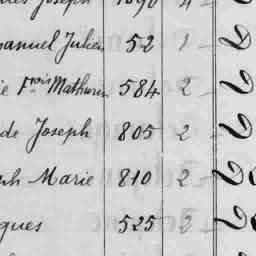 Joseph 1090 4 -
anuel Julien 52 1 -
ie Fçois Mathurin 584 2 -
de Joseph 805 2 -
ph Marie 810 2 -
ques 525 2 -